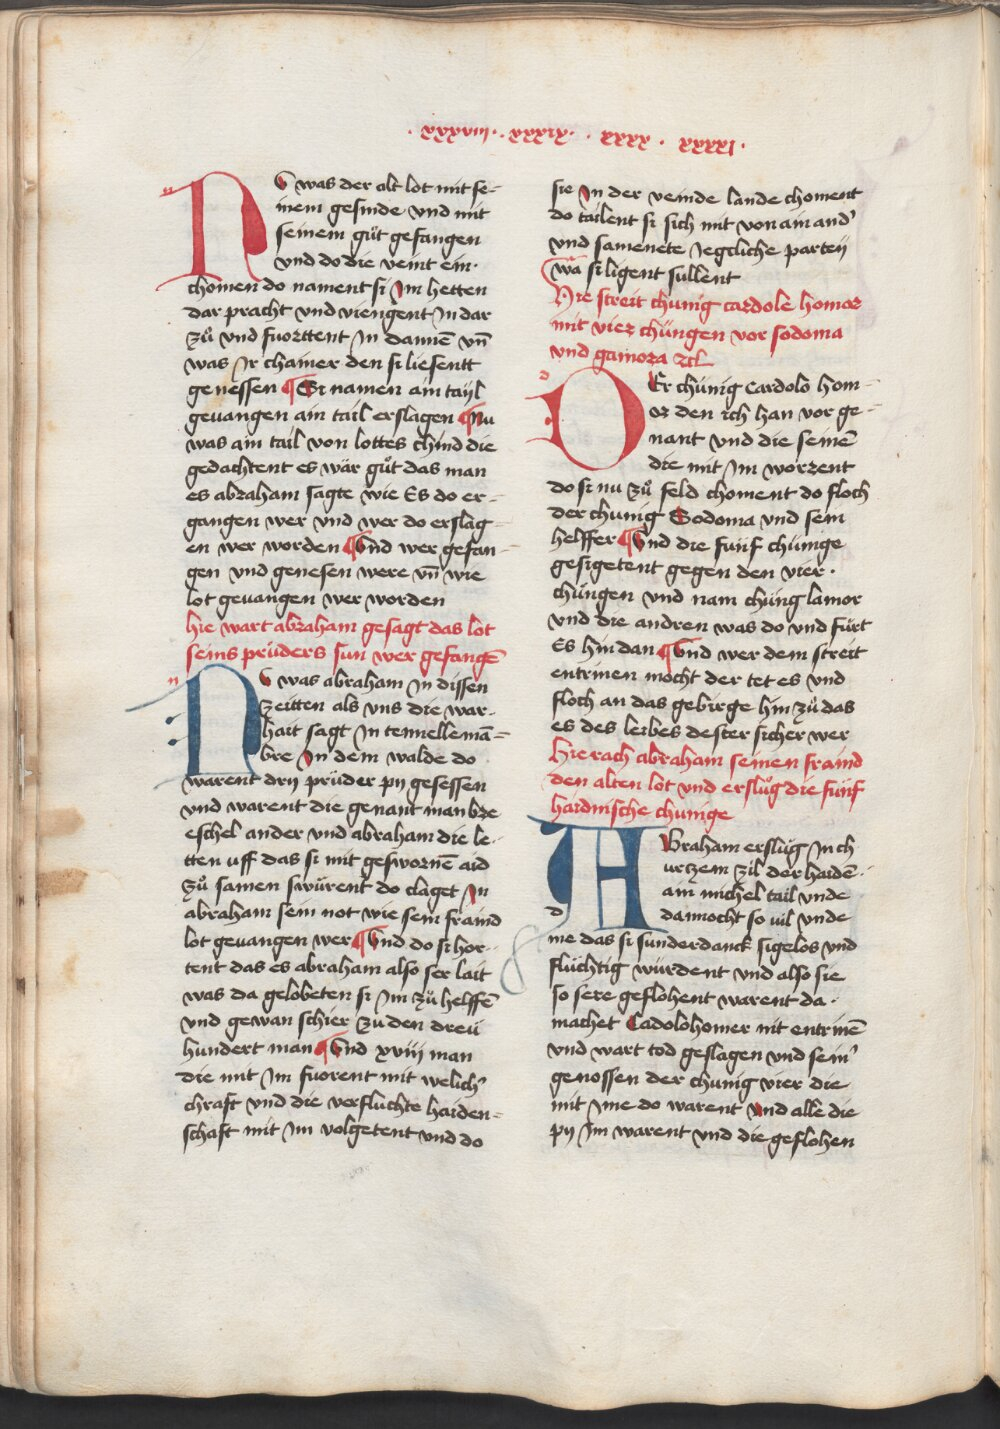 · xxxviii · xxxix · · xxxx · xxxxi ·
NU was der alt lot mit se-
inem gesinde vnd mit
seinem gůt gefangen
vnd do die veint ein·
chomen do nament si Im hetten
dar pracht vnd viengent In dar
zů vnd fuorttent In dannē vn̄
was Ir chainer den si liesentt
genessen ¶ Si namen ain tayl
geuangen ain tail erslagen ¶ Nu
was ain tail von lottes chind die
gedachtent es wär gůt das man
es abraham sagte wie Es do er-
gangen wer vnd wer do erslag-
en wer worden ¶ Vnd wer gefan-
gen vnd genesen were vn̄ wie
lot geuangen wer worden
hie wart abraham gesagt das lot
seins prüders sun wer gefangē
NU was abraham In dissen
zeitten als vns die war-
hait sagt In tennellemā-
bre In dem walde do
warent drij prüder pij gesessen
vnd warent die genant manbre
eschel ander vnd abraham die le-
tten uff das si mit geswornē aid
zů samen swůrent do claget In
abraham sein not wie sein fraind
lot geuangen wer ¶ Vnd do si hor-
tent das es abraham also ser lait
was da gelobeten si Im zů helffē
vnd gewan schier zu den dreü
hundert man ¶ Vnd xviij man
die mit Im fuorent mit welich'
chraft vnd die verfluchte haiden-
schaft mit Im volgetent vnd do
sie In der veinde lande choment
do tailent si sich mit von ain and'
vnd samenete Iegcliche parteij
wa si ligent sullent
Hie streit chunig cardole homor
mit vier chüngen vor sodoma
vnd gamora ꝛcͭ
DEr chünig cardolo hom-
or den ich han vor ge-
nant vnd die seinē
die mit Im worzent
do si nu zů feld choment do floch
der chunig Sodoma vnd sein
helffer ¶ Vnd die fünf chünige
gesigetent gegen den vier·
chüngen vnd nam chüng lamor
vnd die andren was do vnd fürt
Es hin dan ¶ Vnd wer dem streit
entrinen mocht der tet es vnd
floch an das gebirge hin zů das
es des leibes dester sicher wer
hie rach abraham seinen fraind
den alten lot vnd erslůg die fünf
haidnische chunige
ABraham erslůg In ch
urtzem zil der haidē·
ain michel tail vnde
dannocht so uil vnde
me das si sunderdanck sigelos vnd
flüchtig würdent vnd also sie
so sere geflohent warent da·
machet Cadolohomer nit entrinē
vnd wart tod geslagen vnd sein'
genossen der chunig vier die
mit Ime do warent vnd alle die
pij Im warent vnd die geflohen